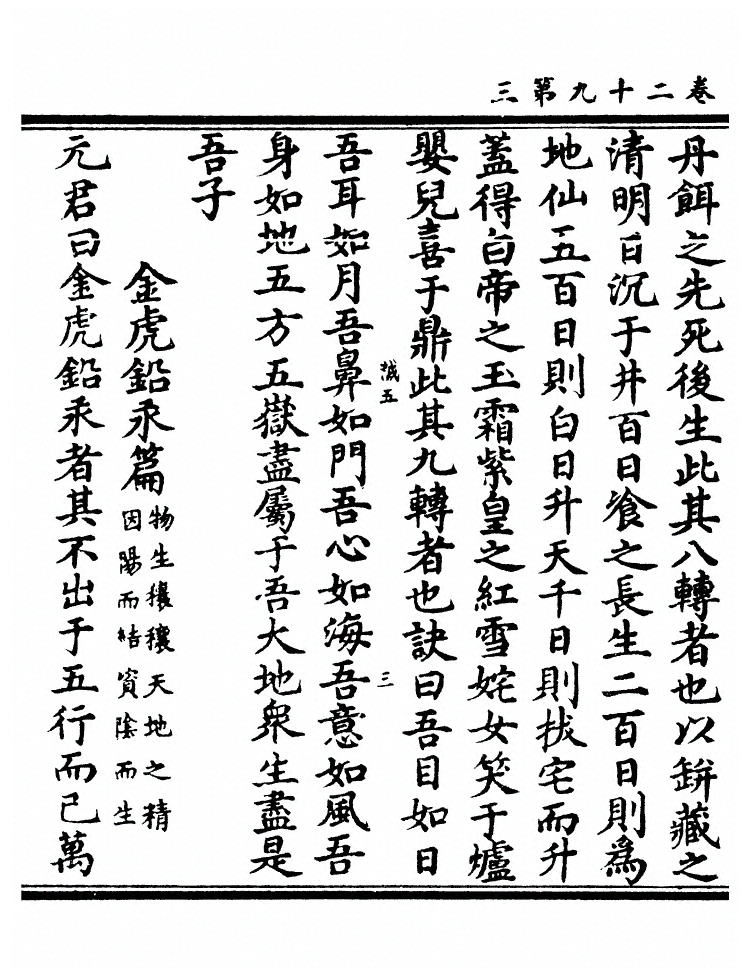 卷二十九第三
丹餌之先死後生此其八轉者也以缾藏之
清明日沉于井百日飡之長生二百日則爲
地仙五百日則白日升天千日則拔宅而升
蓋得白帝之玉霜紫皇之紅雪姹女笑于爐
嬰兒喜于鼎此其九轉者也訣曰吾目如日
棫五
三
吾耳如月吾鼻如門吾心如海吾意如風吾
身如地五方五嶽盡屬于吾大地衆生盡是
吾子
金虎鉛汞篇
物生穰穰天地之精
因陽而結資陰而生
元君曰金虎鉛汞者其不出于五行而已萬